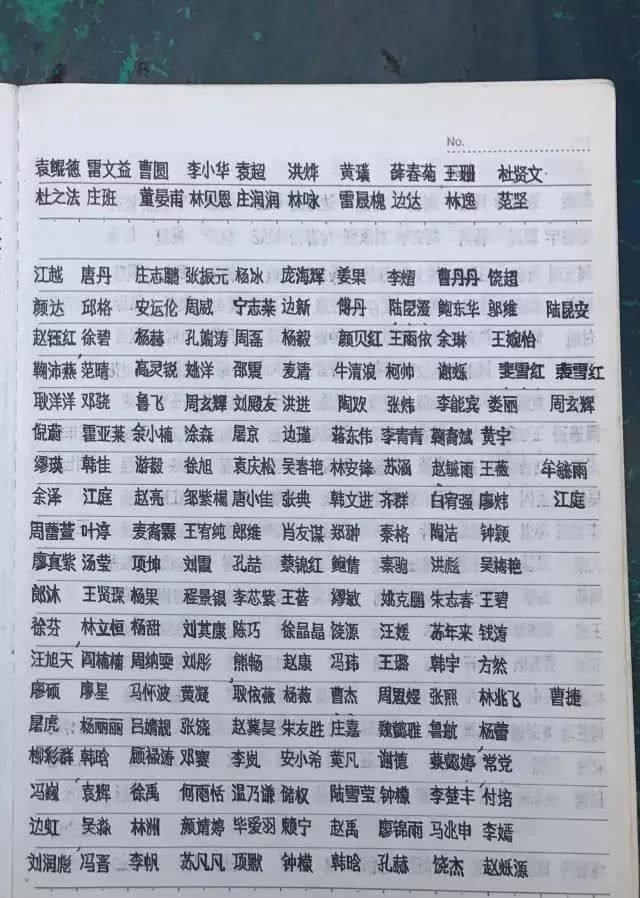 No.
袁鲲德 雷文益 曹圆 李小华 袁超 洪烨 黄璞 薛春菊 王珊 杜贤文
杜之法 庄班 董晏甫 林贝恩 庄润润 林咏 雷晟槐 边达 林逸 范坚
江越 唐丹 庄志鹏 张振元 杨冰 庞海辉 姜果 李熠 曹丹丹 饶超
颜达 邱格 安运伦 周威 宁志莱 边新 傅丹 陆昆澄 鲍东华 邬维 陆昆安
赵钰红 徐碧 杨赫 孔媚涛 周磊 杨毅 颜贝红 王雨依 余琳 王婉怡
鞠沛燕 范晴 高灵锐 姚洋 邵震 麦清 牛清浪 柯帅 谢烁 娄雪红 袁雪红
耿洋洋 邓骁 鲁飞 周玄辉 刘殿友 洪进 陶双 张炜 李能宾 娄丽 周玄辉
倪蔚 霍亚莱 余小楠 涂森 屠京 边瑾 蒋东伟 李青青 鞠裔斌 黄宇
缪瑛 韩佳 游毅 徐旭 袁庆松 吴春艳 林安锋 苏涵 赵毓雨 王薇 牟毓雨
金泽 江庭 赵亮 邹紫楣 唐小佳 张典 韩文进 齐群 白宥强 廖炜 江庭
周蕾萱 叶淳 麦裔霖 王宥纯 郎维 肖友谋 郑翀 秦格 陶洁 钟颖
廖真紫 汤莹 项坤 刘霞 孔喆 蔡锦红 鲍倩 秦驰 洪彪 吴梅艳
郎沐 王贤琛 杨果 程景银 李芯紫 王菩 缪敏 姚克鹏 朱志春 王碧
徐芬 林立恒 杨甜 刘其康 陈巧 徐晶晶 饶源 汪媛 苏年来 钱涛
汪旭天 阎楠楠 周纳雯 刘彤 熊畅 赵康 冯玮 王璐 韩宇 方然
廖硕 廖星 马怀波 黄凝 耿依薇 杨薇 曹杰 周恩煜 张熙 林兆飞 曹捷
屠虎 杨丽丽 吕嬌靓 张饶 赵冀昊 朱友胜 庄嘉 魏懿雅 鲁航 杨蕾
柳彩群 韩晗 顾禄涛 邓霙 李岚 安小希 黄凡 谢德 蔡懿婷 常党
冯巍 袁辉 徐禹 何雨恬 温乃谦 储权 陆雪莹 钟檬 李楚丰 付培
边虹 吴淼 林洲 颜婧婷 毕爱羽 顾宁 赵禹 廖锦雨 马兆申 李嫣
刘润彪 冯晋 李帆 苏凡凡 项默 钟檬 韩晗 孔赫 饶杰 赵烁源